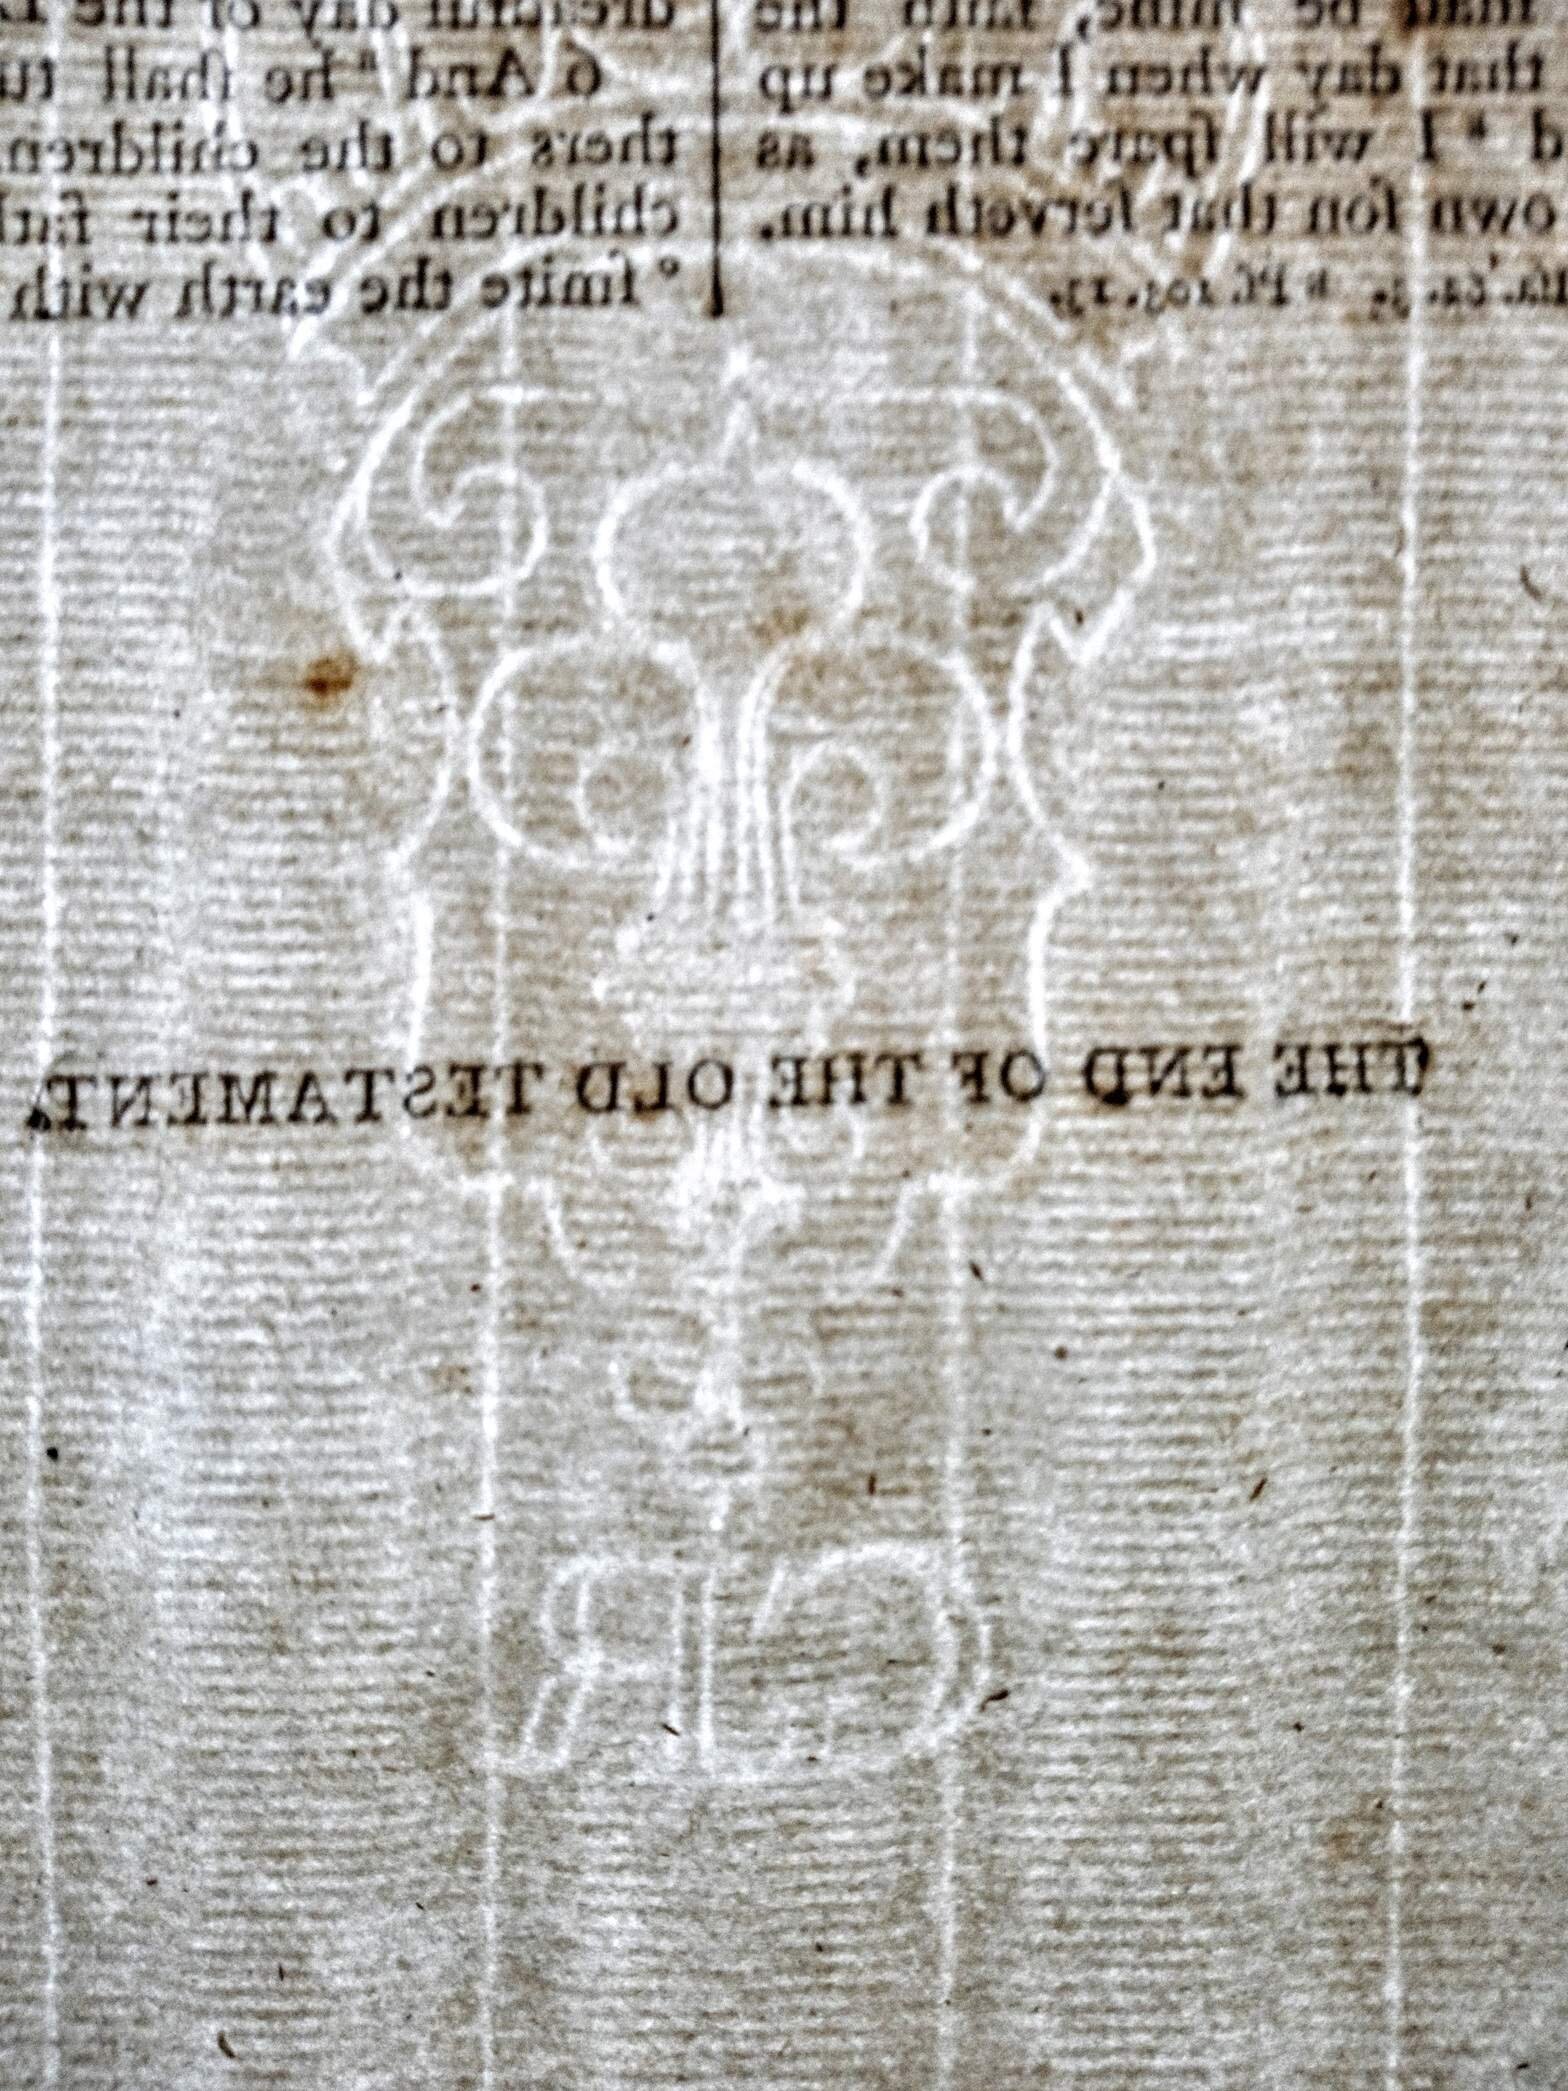 be mine, ſaith the
that day when I make up
I will ſpare them, as
own ſon that ſerveth him.
62. 3. Pſ. 103. 13.
dreadful day of the
6 And he ſhall
thers to the children
children to their
ſmite the earth with
THE END OF THE OLD TESTAMENT.
GR